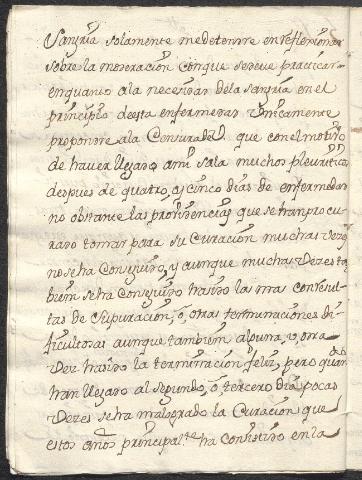 Sangria solamente me detenire en reflexionar
sobre la moderación con que se deve practicar
en quanto a la necesidad de la Sangria en el
principio de esta enfermedad Unicamente
propondre a la Censura de V. que con el motivo
de haver llegado a mi sala muchos pleuriticos
despues de quatro, o, cinco dias de enfermedad
no obstante las providencias que se han procu
rado tomar para su Curación muchas vezes
no se ha Conseguido, y aunque muchas vezes ta
bien se ha Conseguido ha sido las mas con resul
tas de Supuración, ó, otras terminaciones di
ficultosas aunque tambien alguna, u, otra
vez ha sido la terminación feliz, pero quando
han llegado al segundo, ó, tercero dia pocas
vezes se ha malogrado la Curación que
estos años principal.te ha consistido en la